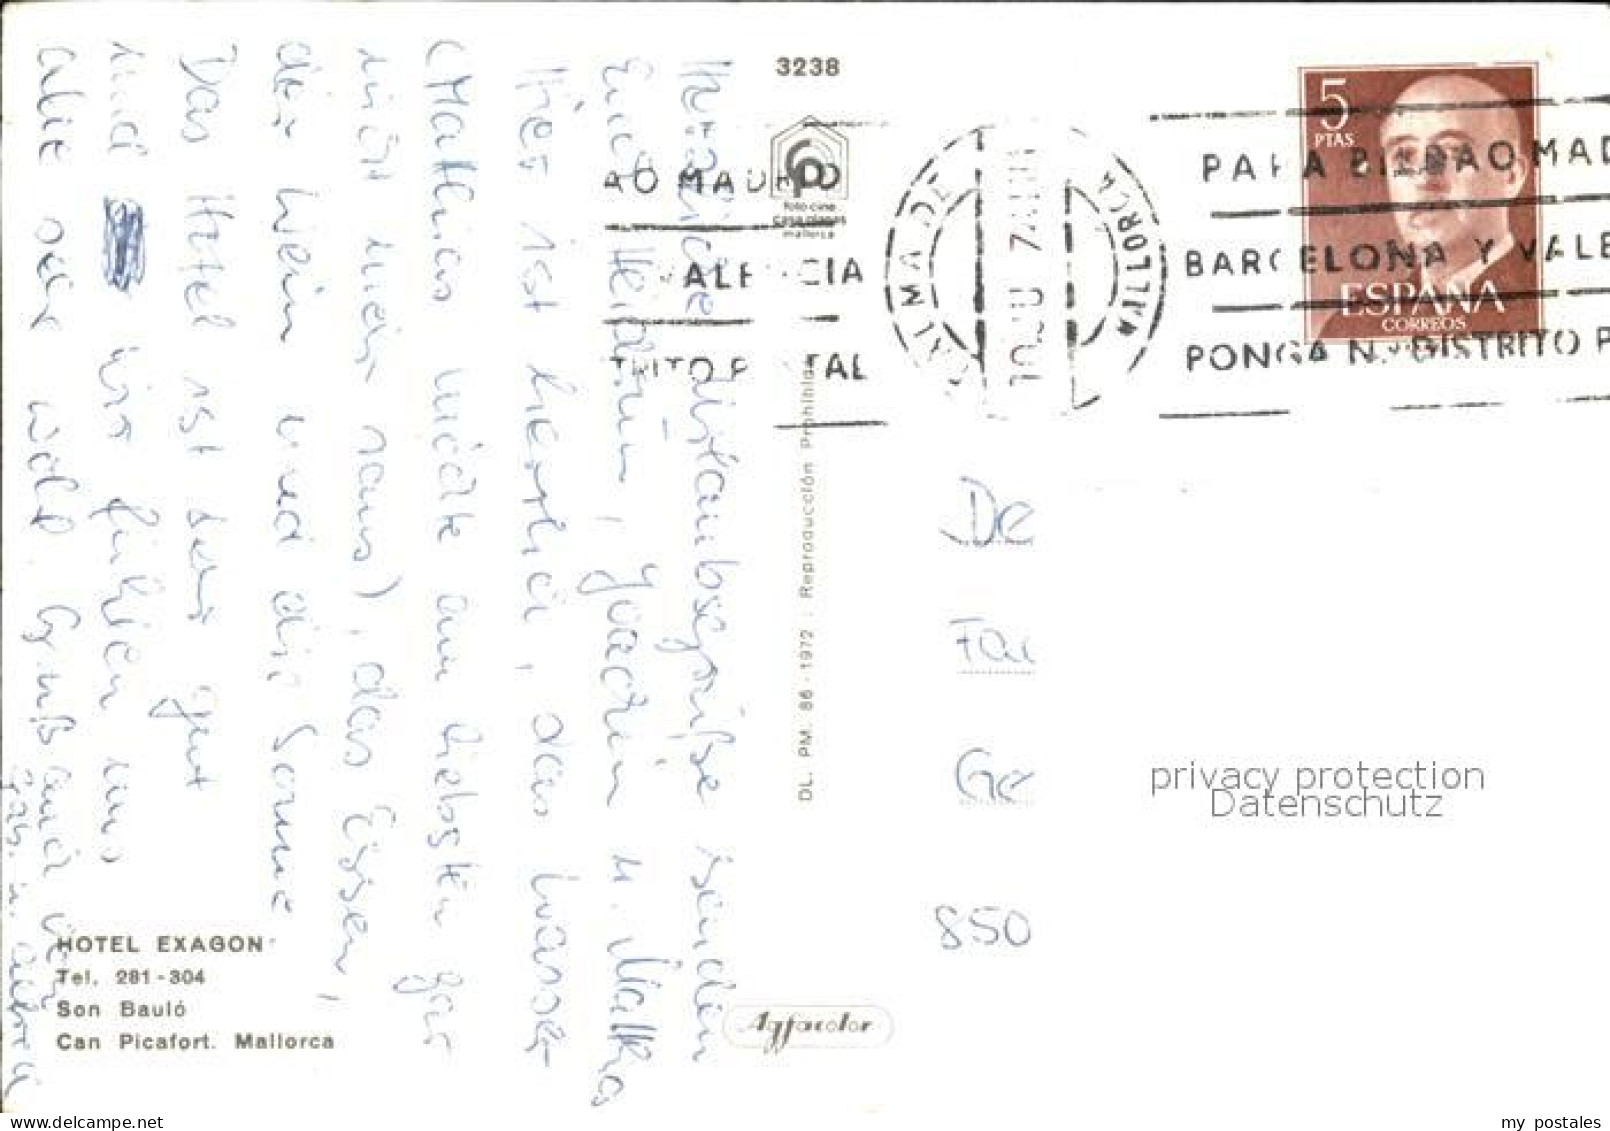 3238
foto-cine
casa planas
mallorca
AO MADRID
ALENCIA
TRITO POSTAL
PALMA DE
MALLORCA
10 JU 74
5
PTAS
ESPAÑA
CORREOS
PARA BILBAO MAD
BARCELONA Y VALE
PONGA N.º DISTRITO P
Herzliche Urlaubsgrüße senden
Euch Heidrun, Joachim u. Mathias
Hier ist herrlich, das Wasser
(Mathias möchte am liebsten gar
nicht mehr raus), das Essen,
der Wein und die Sonne
Das Hotel ist sehr gut
und wir fühlen uns
alle sehr wohl. Gruß auch von
DL. PM. 86-1972 - Reproducción Prohibida
De
Fa
Ge
850
privacy protection
Datenschutz
HOTEL EXAGON
Tel. 281-304
Son Bauló
Can Picafort. Mallorca
Agfacolor
delcampe.net
my_postales